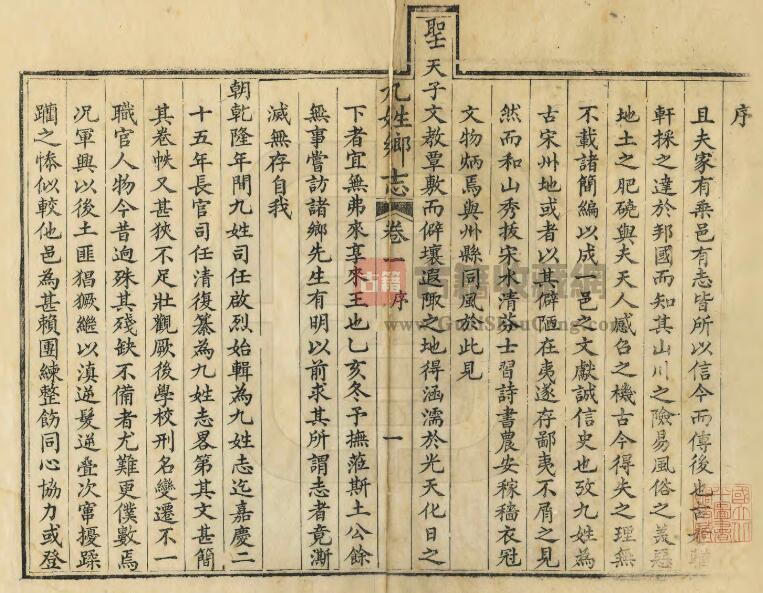 序
且夫家有乘邑有志皆所以信今而傳後也
軒採之達於邦國而知其山川之險易風俗之美惡
地土之肥磽與夫天人感召之機古今得失之理無
不載諸簡編以成一邑之文獻誠信史也攷九姓為
古宋州地或者以其僻陋在夷遂存鄙夷不屑之見
然而和山秀拔宋水清芬士習詩書農安稼穡衣冠
文物炳焉與州縣同風於此見
聖天子文教覃敷而僻壤遐陬之地得涵濡於光天化日之
九姓鄉志 卷一 序 一
下者宜無弗來享來王也乙亥冬予撫蒞斯土公餘
無事嘗訪諸鄉先生有明以前求其所謂志者竟澌
滅無存自我
朝乾隆年間九姓司任啟烈始輯為九姓志迄嘉慶二
十五年長官司任清復纂為九姓志畧第其文甚簡
其卷帙又甚狹不足壯觀厥後學校刑名變遷不一
職官人物今昔逈殊其殘缺不備者尤難更僕數焉
況軍興以後土匪猖獗繼以滇逆髮逆疊次竄擾蹂
躪之慘似較他邑為甚賴團練整飭同心協力或登
古籍
古籍收藏網
www.GuJiShouCang.com